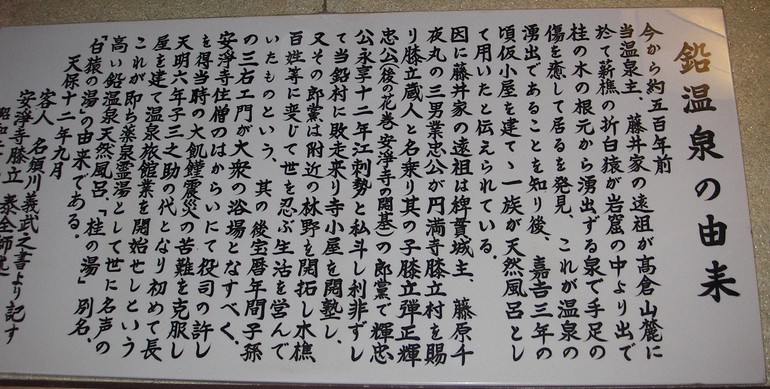 鉛温泉の由来
今から約五百年前
当温泉主、藤井家の遠祖が高倉山麓に
於て薪樵の折白猿が岩窟の中より出で
桂の木の根元から湧出ずる泉で手足の
傷を癒して居るを発見、これが温泉の
湧出であることを知り後、嘉吉三年の
頃仮小屋を建てゝ一族が天然風呂とし
て用いたと伝えられている。
因に藤井家の遠祖は稗貫城主、藤原千
夜丸の三男業忠公が円満寺膝立村を賜
り膝立蔵人と名乗り其の子膝立弾正輝
忠公(後の花巻安浄寺の開基)の郎党で輝忠
公永享十二年江刺勢と私斗し利非ずし
て当鉛村に敗走来り寺小屋を開塾し、
又その郎党は附近の林野を開拓し木樵
百姓等に変じて世を忍ぶ生活を営んで
いたものという、其の後宝暦年間子孫
の三右エ門が大衆の浴場となすべく、
安浄寺住僧のはからいにて役司の許し
を得当時の大飢饉震災の苦難を克服し
天明六年子三之助の代となり初めて長
屋を建て温泉旅館業を開始せしという
これが即ち薬泉霊湯として世に名声の
高い鉛温泉天然風呂、「桂の湯」別名、
「白猿の湯」の由来である。
天保十二年九月
客人 名須川義武之書より記す
安浄寺膝立 泰全師
昭和